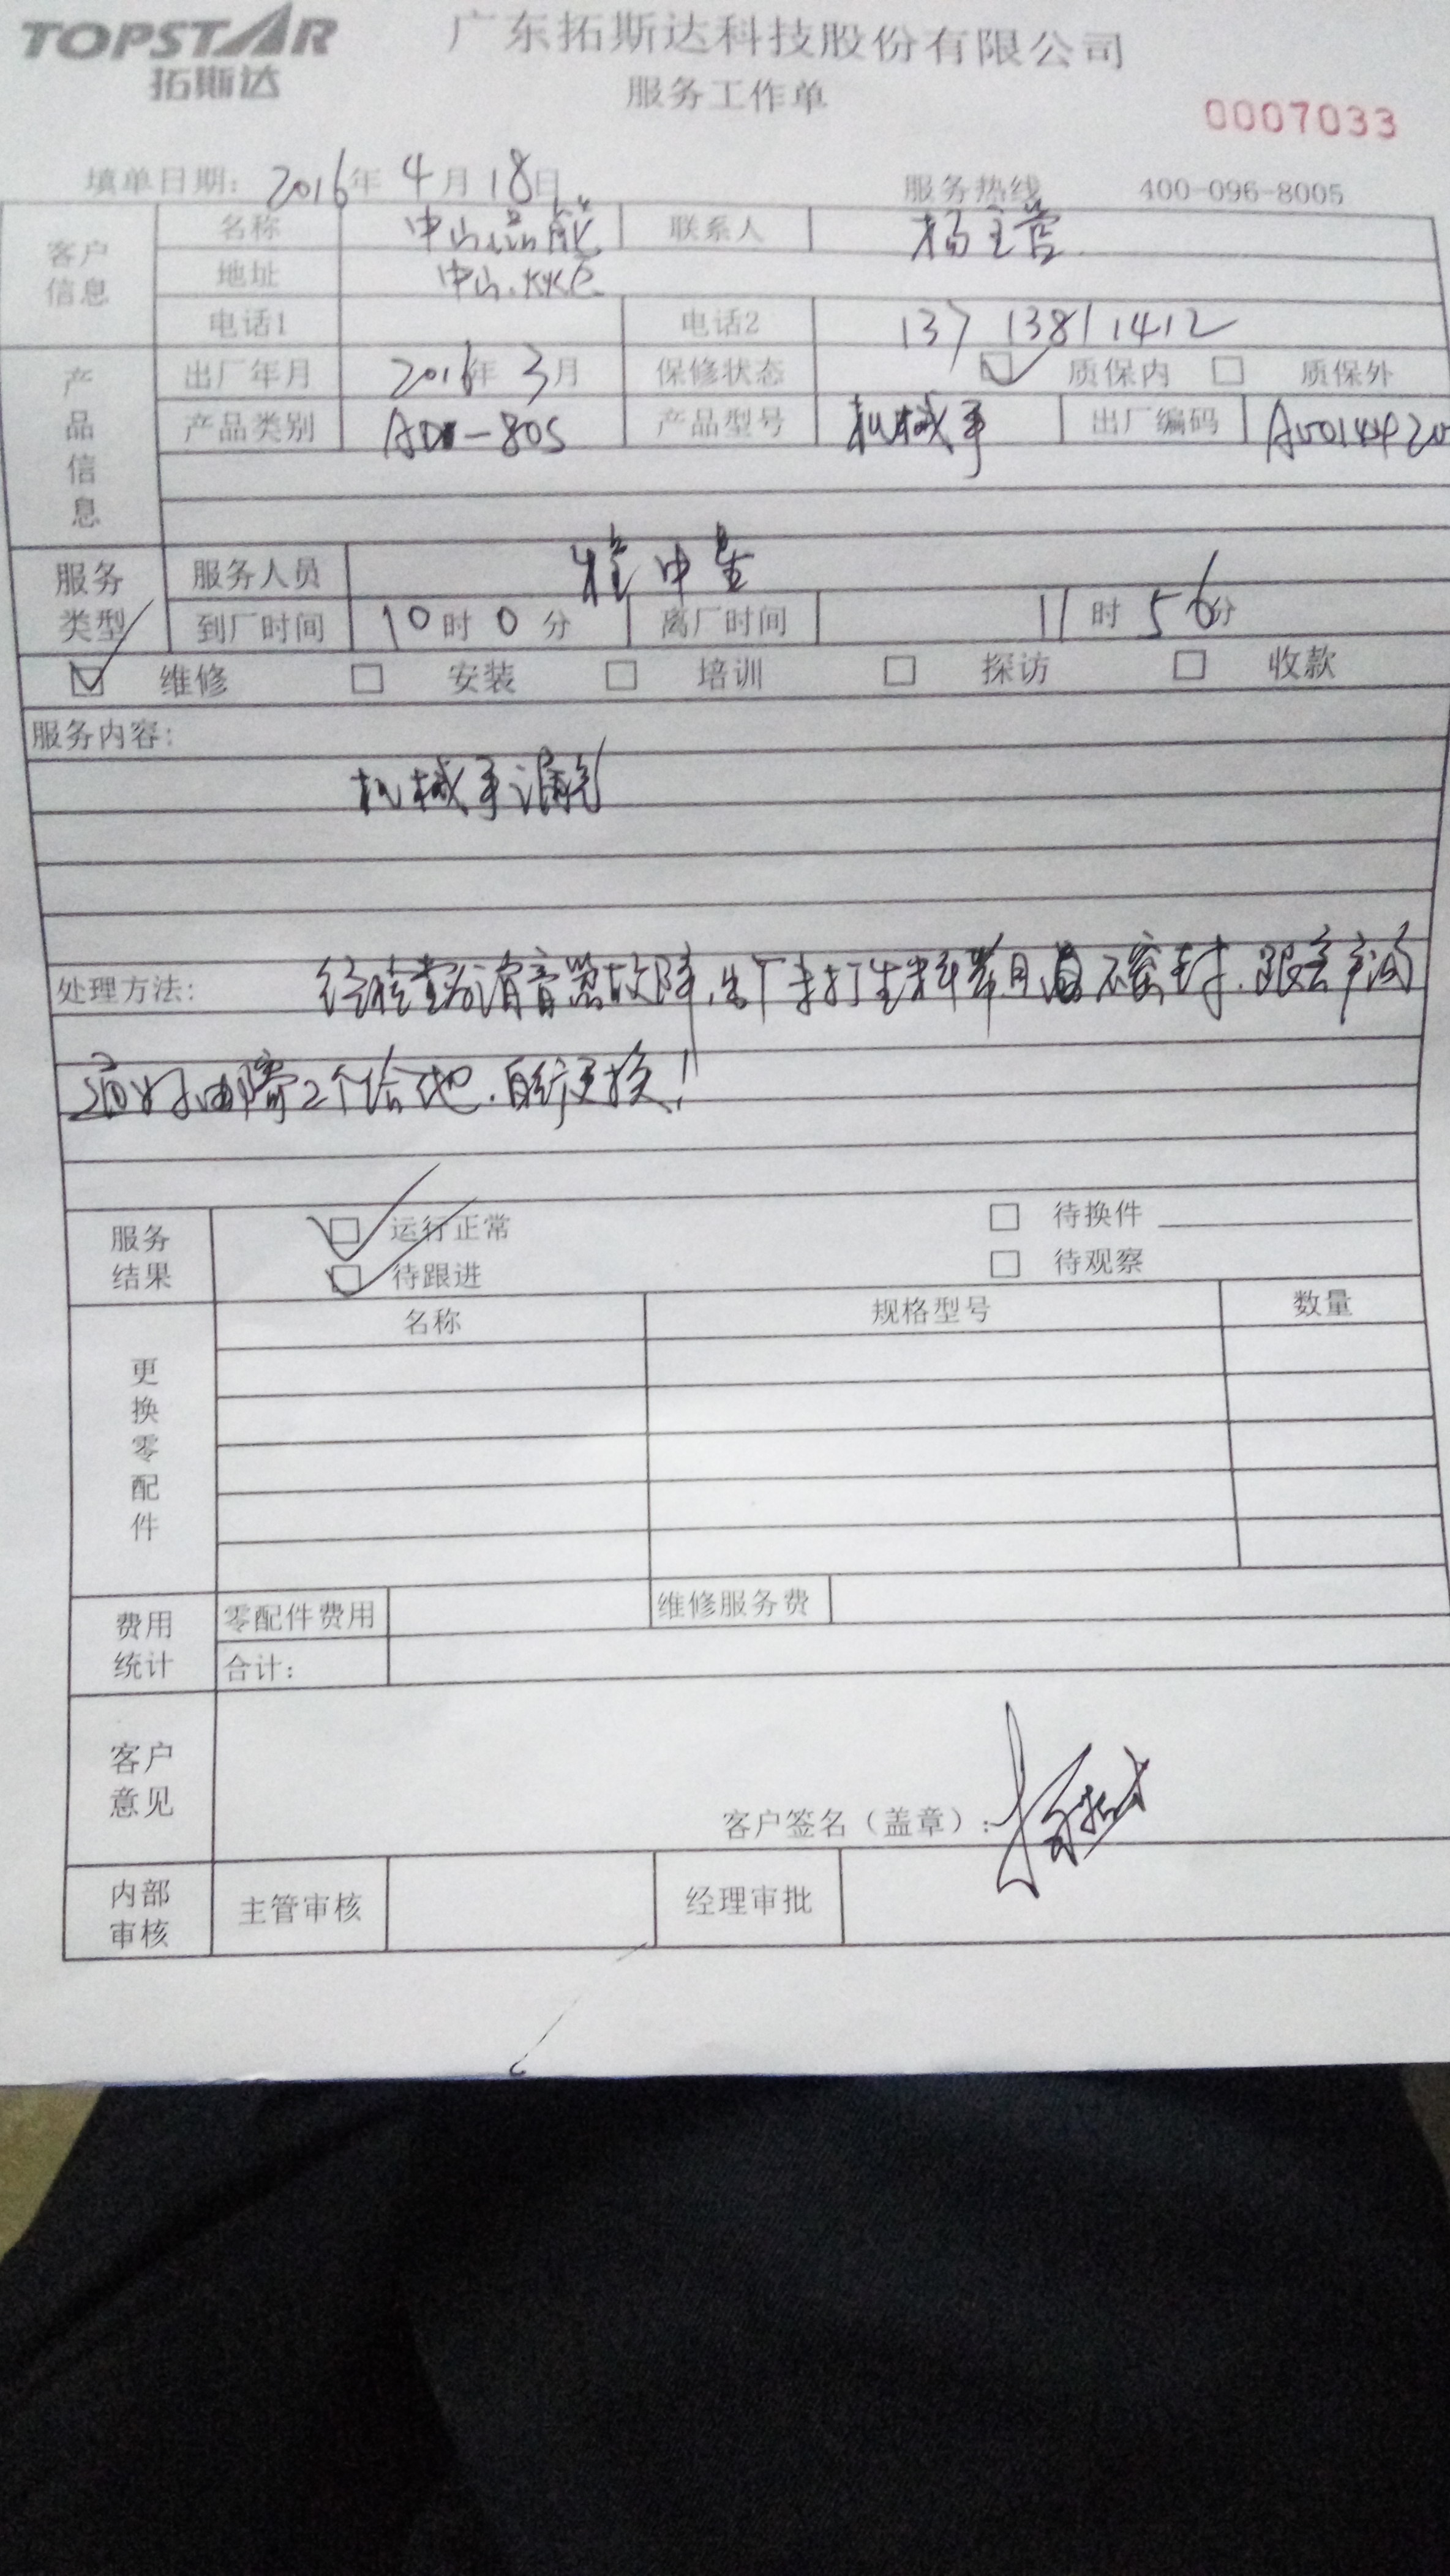 TOPSTAR
拓斯达
广东拓斯达科技股份有限公司
服务工作单
0007033
填单日期: 2016年 4月 18日
服务热线 400-096-8005
客户信息
名称 中山品能 联系人 杨主管
地址 中山.火炬
电话1 电话2 13713811412
产品信息
出厂年月 2016年 3月 保修状态 质保内 质保外
产品类别 产品型号 机械手 出厂编码
服务类型
服务人员
到厂时间 10时 0分 离厂时间 11时 56分
维修 安装 培训 探访 收款
服务内容:
机械手漏气
处理方法: 经检查为消音器故障,生料带 不密封.跟客户沟
通好邮寄2个给他.自行更换!
服务结果
运行正常 待换件
待跟进 待观察
更换零配件
名称 规格型号 数量
费用统计
零配件费用 维修服务费
合计:
客户意见
客户签名（盖章）:
内部审核
主管审核 经理审批